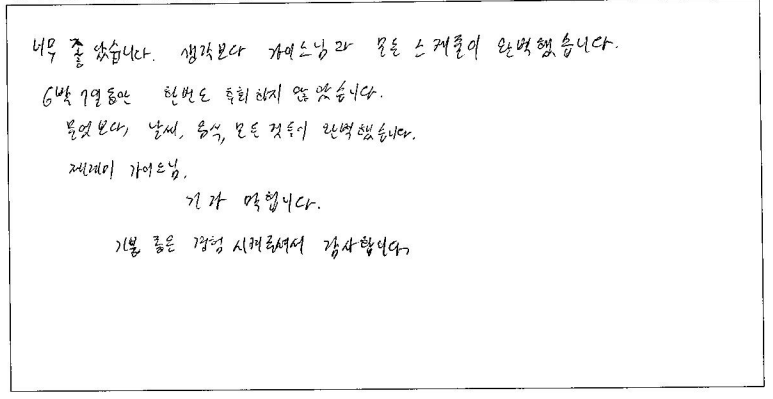 너무 좋았습니다. 생각보다 가이드님과 모든 스케줄이 완벽했습니다.
6박 7일동안 한번도 후회하지 않았습니다.
무엇보다, 날씨, 음식, 모든 것들이 완벽했습니다.
가이드님,
기가 막힙니다.
기분 좋은 경험 시켜주셔서 감사합니다.